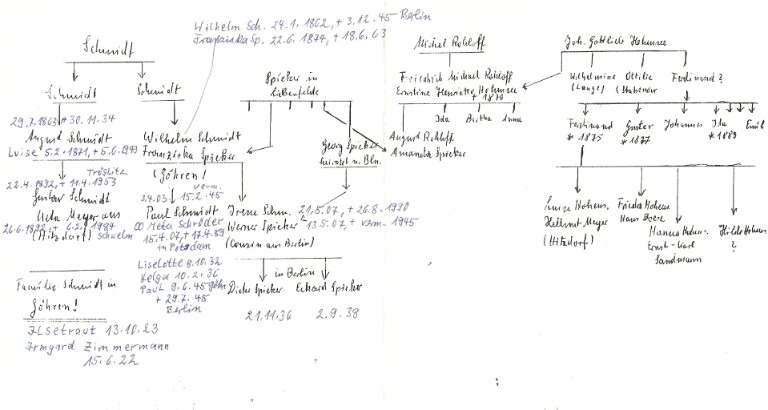 Wilhelm Sch. 24.1.1862, + 3.12.45 Berlin
Franziska Sp. 22.6.1874, + 18.6.63
Schmidt
Schmidt
Schmidt
29.7.1863 + 30.11.34
August Schmidt
Luise 5.2.1871, + 5.6.1943
Tröglitz
22.4.1892, + 11.4.1953
Gustav Schmidt
Meta Meyer aus
(Hitzdorf) Schwelm
Familie Schmidt in
Göhren!
Ilsetraut 13.10.23
Irmgard Zimmermann
15.6.22
Wilhelm Schmidt
Franziska Spieker
(Göhren!)
verm.
2.4.03 15.2.45
Paul Schmidt
∞ Meta Schröder
15.4.07, + 17.4.89
in Potsdam
Liselotte 8.10.32
Helga 10.2.36
Paul 9.6.45
+ 29.7.45
Berlin
Spieker in
Georg Spieker
Irene Schm. 21.5.07, + 26.8.1990
Werner Spieker 13.5.07, + verm. 1945
(Cousin aus Berlin)
in Berlin
Dieter Spieker Eckard Spieker
21.11.36 2.9.38
Michael Rohloff
Friedrich Michael Rohloff
Ernstine Henriette Hohensee
+ 1876
Ida Bertha Anna
August Rohloff
Amanda Spieker
Joh. Gottlieb Hohensee
Wilhelmine Ottilie Ferdinand?
(Lange)
Ferdinand Gustav Johannes Ida Emil
* 1875 * 1877 * 1889
Luise Hohens.
Hellmut Meyer
(Hitzdorf)
Frieda Hohens.
Hans
Hohens.
Ernst-Karl
Sandmann
Hilde Hohens.
?